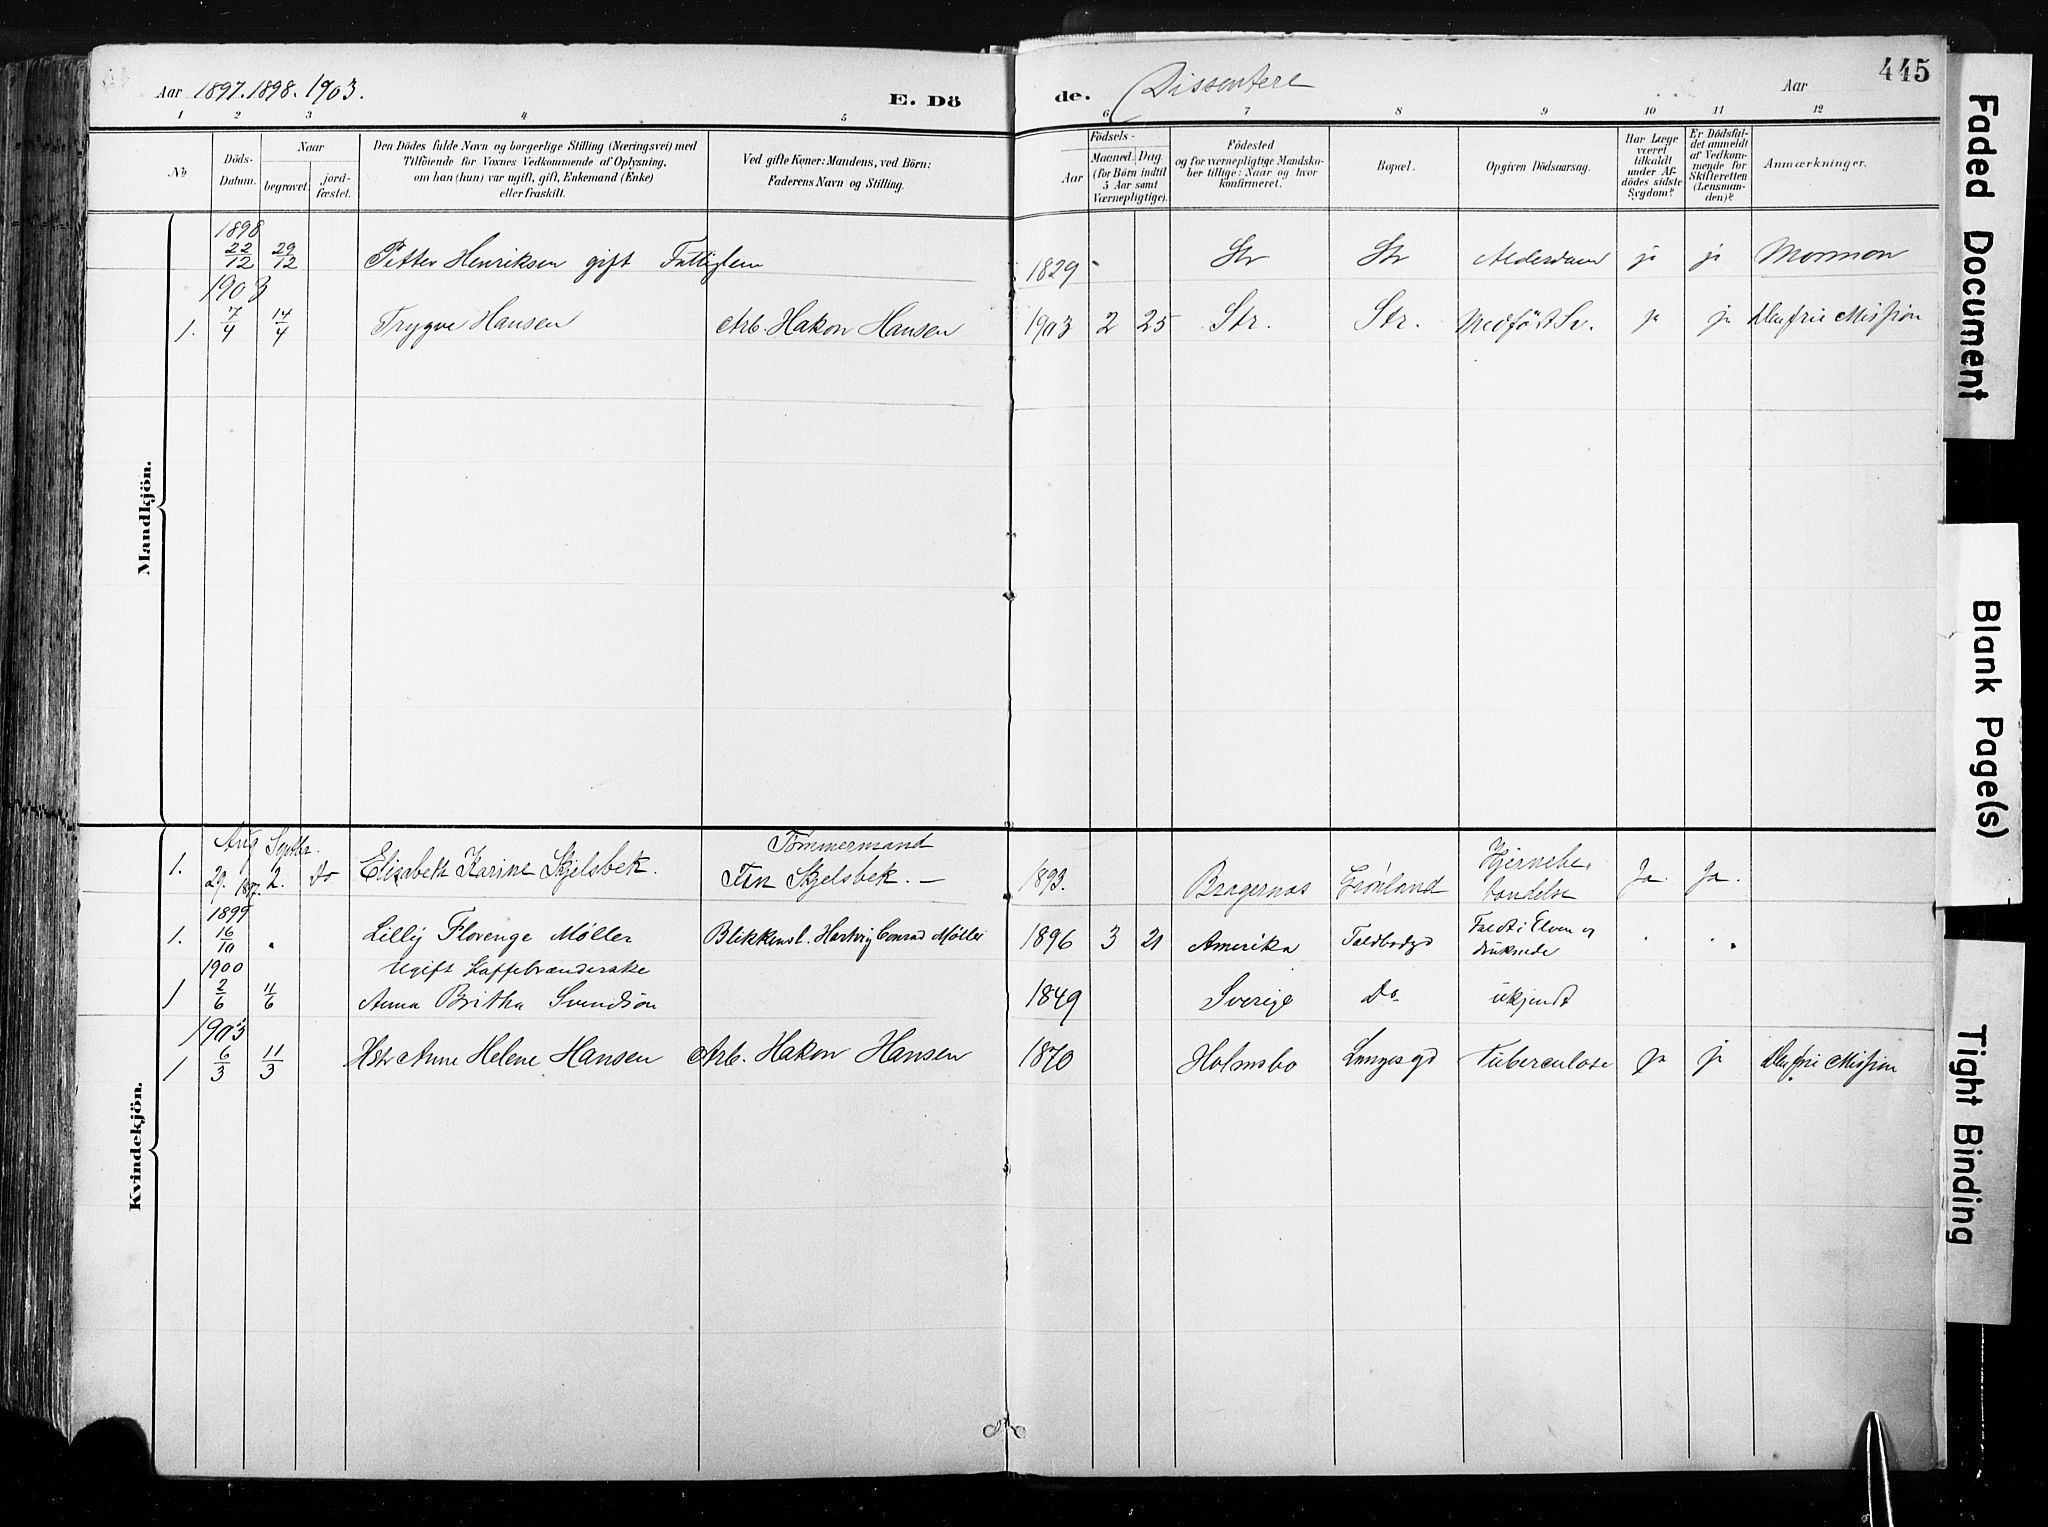 Aar 1897. 1898. 1903.
E. Dö
de.
Dissentere
Aar
445
1 2 3 4 5
6 7 8 9 10 11 12
№
Döds-
Datum.
Naar
begravet.
jord-
fæstet.
Den Dödes fulde Navn og borgerlige Stilling (Næringsvei) med
Tilföiende för Voxnes Vedkommende af Oplysning,
om han (hun) var ugift, gift, Enkemand (Enke)
eller fraskilt.
Ved gifte Koner: Mandens, ved Börn:
Faderens Navn og Stilling.
Födsels-
Aar
Maaned. Dag
(for Börn indtil
5 Aar samt
Værnepligtige).
Födested
og for værnepligtige Mandskaber
ber tillige: Naar og hvor
konfirmeret.
Bopæl.
Opgiven Dödsaarsag.
Har Læge
været
tilkaldt
under Af-
dödes sidste
Sygdom?
Er Dödsfal-
det anmeldt
af Vedkom-
mende for
Skifteretten
(Lensman-
den)?
Anmærkninger.
Mandkjön.
1898
22/12 29/12 Petter Henriksen gift Fattiglem 1829 - Str Str Alderdom ja ja Mormon
1903
1. 7/4 14/4 Trygve Hansen Arb. Hakon Hansen 1903 2 25 Str. Str. Medfödt Sv. ja ja Den frie Mission
Kvindekjön.
Aug Septbr. Tömmermand Hjernebe-
1. 29. 1897. 2. Do Elisabeth Karine Skjelsbek. Finn Skjelsbek. — 1893. Bragernas Grönland tændelse Ja. Ja.
1899
1. 16/10 " Lilly Florenge Møller Blikkensl. Hartvig Conrad Møller 1896 3 21 Amerika Toldbodgd Faldt i Elven og
druknede
1900 Ugift Kaffebrænderske
1 2/6 11/6 Anna Britha Svendsön 1849 Sverige Do ukjendt
1903
1 6/3 11/3 Hstr Anne Helene Hansen Arb. Hakon Hansen 1870 Holmsbo Langesgd Tuberculose ja ja Den frie Mission
Faded Document
Blank Page(s)
Tight Binding